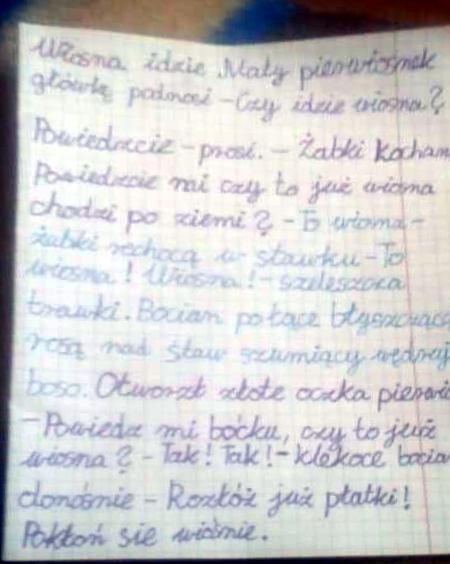 Wiosna idzie Mały pierwiosnek
główkę podnosi - Czy idzie wiosna?
Powiedzcie - prosi. - Żabki kocham
Powiedzcie mi czy to już wiosna
chodzi po ziemi? - To wiosna -
żabki rechocą w stawku - To
wiosna! Wiosna! - szeleszczą
trawki. Bocian po łące błyszczącą
rosą nad staw szumiący wędruj
boso. Otworzł złote oczka pierwi
- Powiedz mi boćku, czy to już
wiosna? - Tak! Tak! - klekoce bocian
donośnie - Rozłóż już płatki!
Pokłoń się wiośnie.